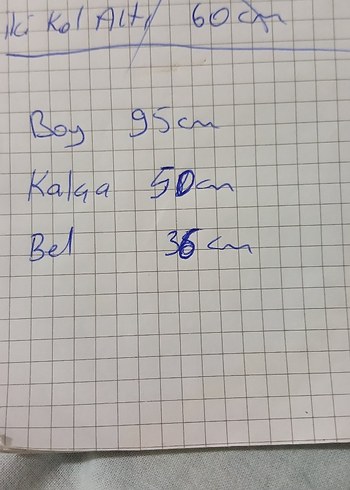 İki Kol Altı 60 cm
Boy 95cm
Kalça 50cm
Bel 36 cm